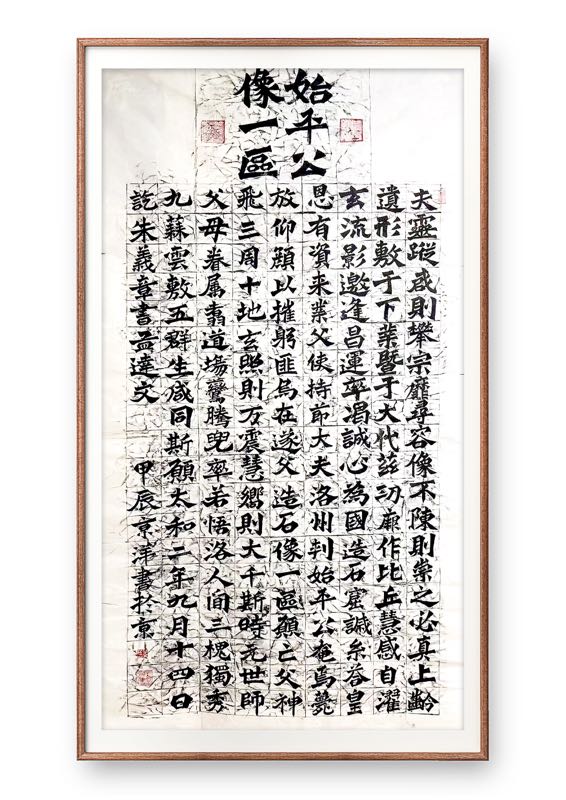 始平公
像一區
夫靈蹤咸則攀宗靡尋容像不陳則崇之必真上齡
遺形敷于下葉暨于大代茲功厥作比丘慧感自濯
玄流影邀逢昌運率渴誠心為國造石窟誠糸荅皇
恩有資来業父使持節大夫洛州判始平公奄焉薨
放仰顏以摧躬匪烏在遂父造石像一區願亡父神
飛三周十地玄照則万震慧嚮則大千斯時元世師
父母眷属翥道場鸞騰兜率若悟洛人間三槐獨秀
九蘇雲敷五群生咸同斯願太和二年九月十四日
訖朱義章書孟達文 甲辰京洋書於京